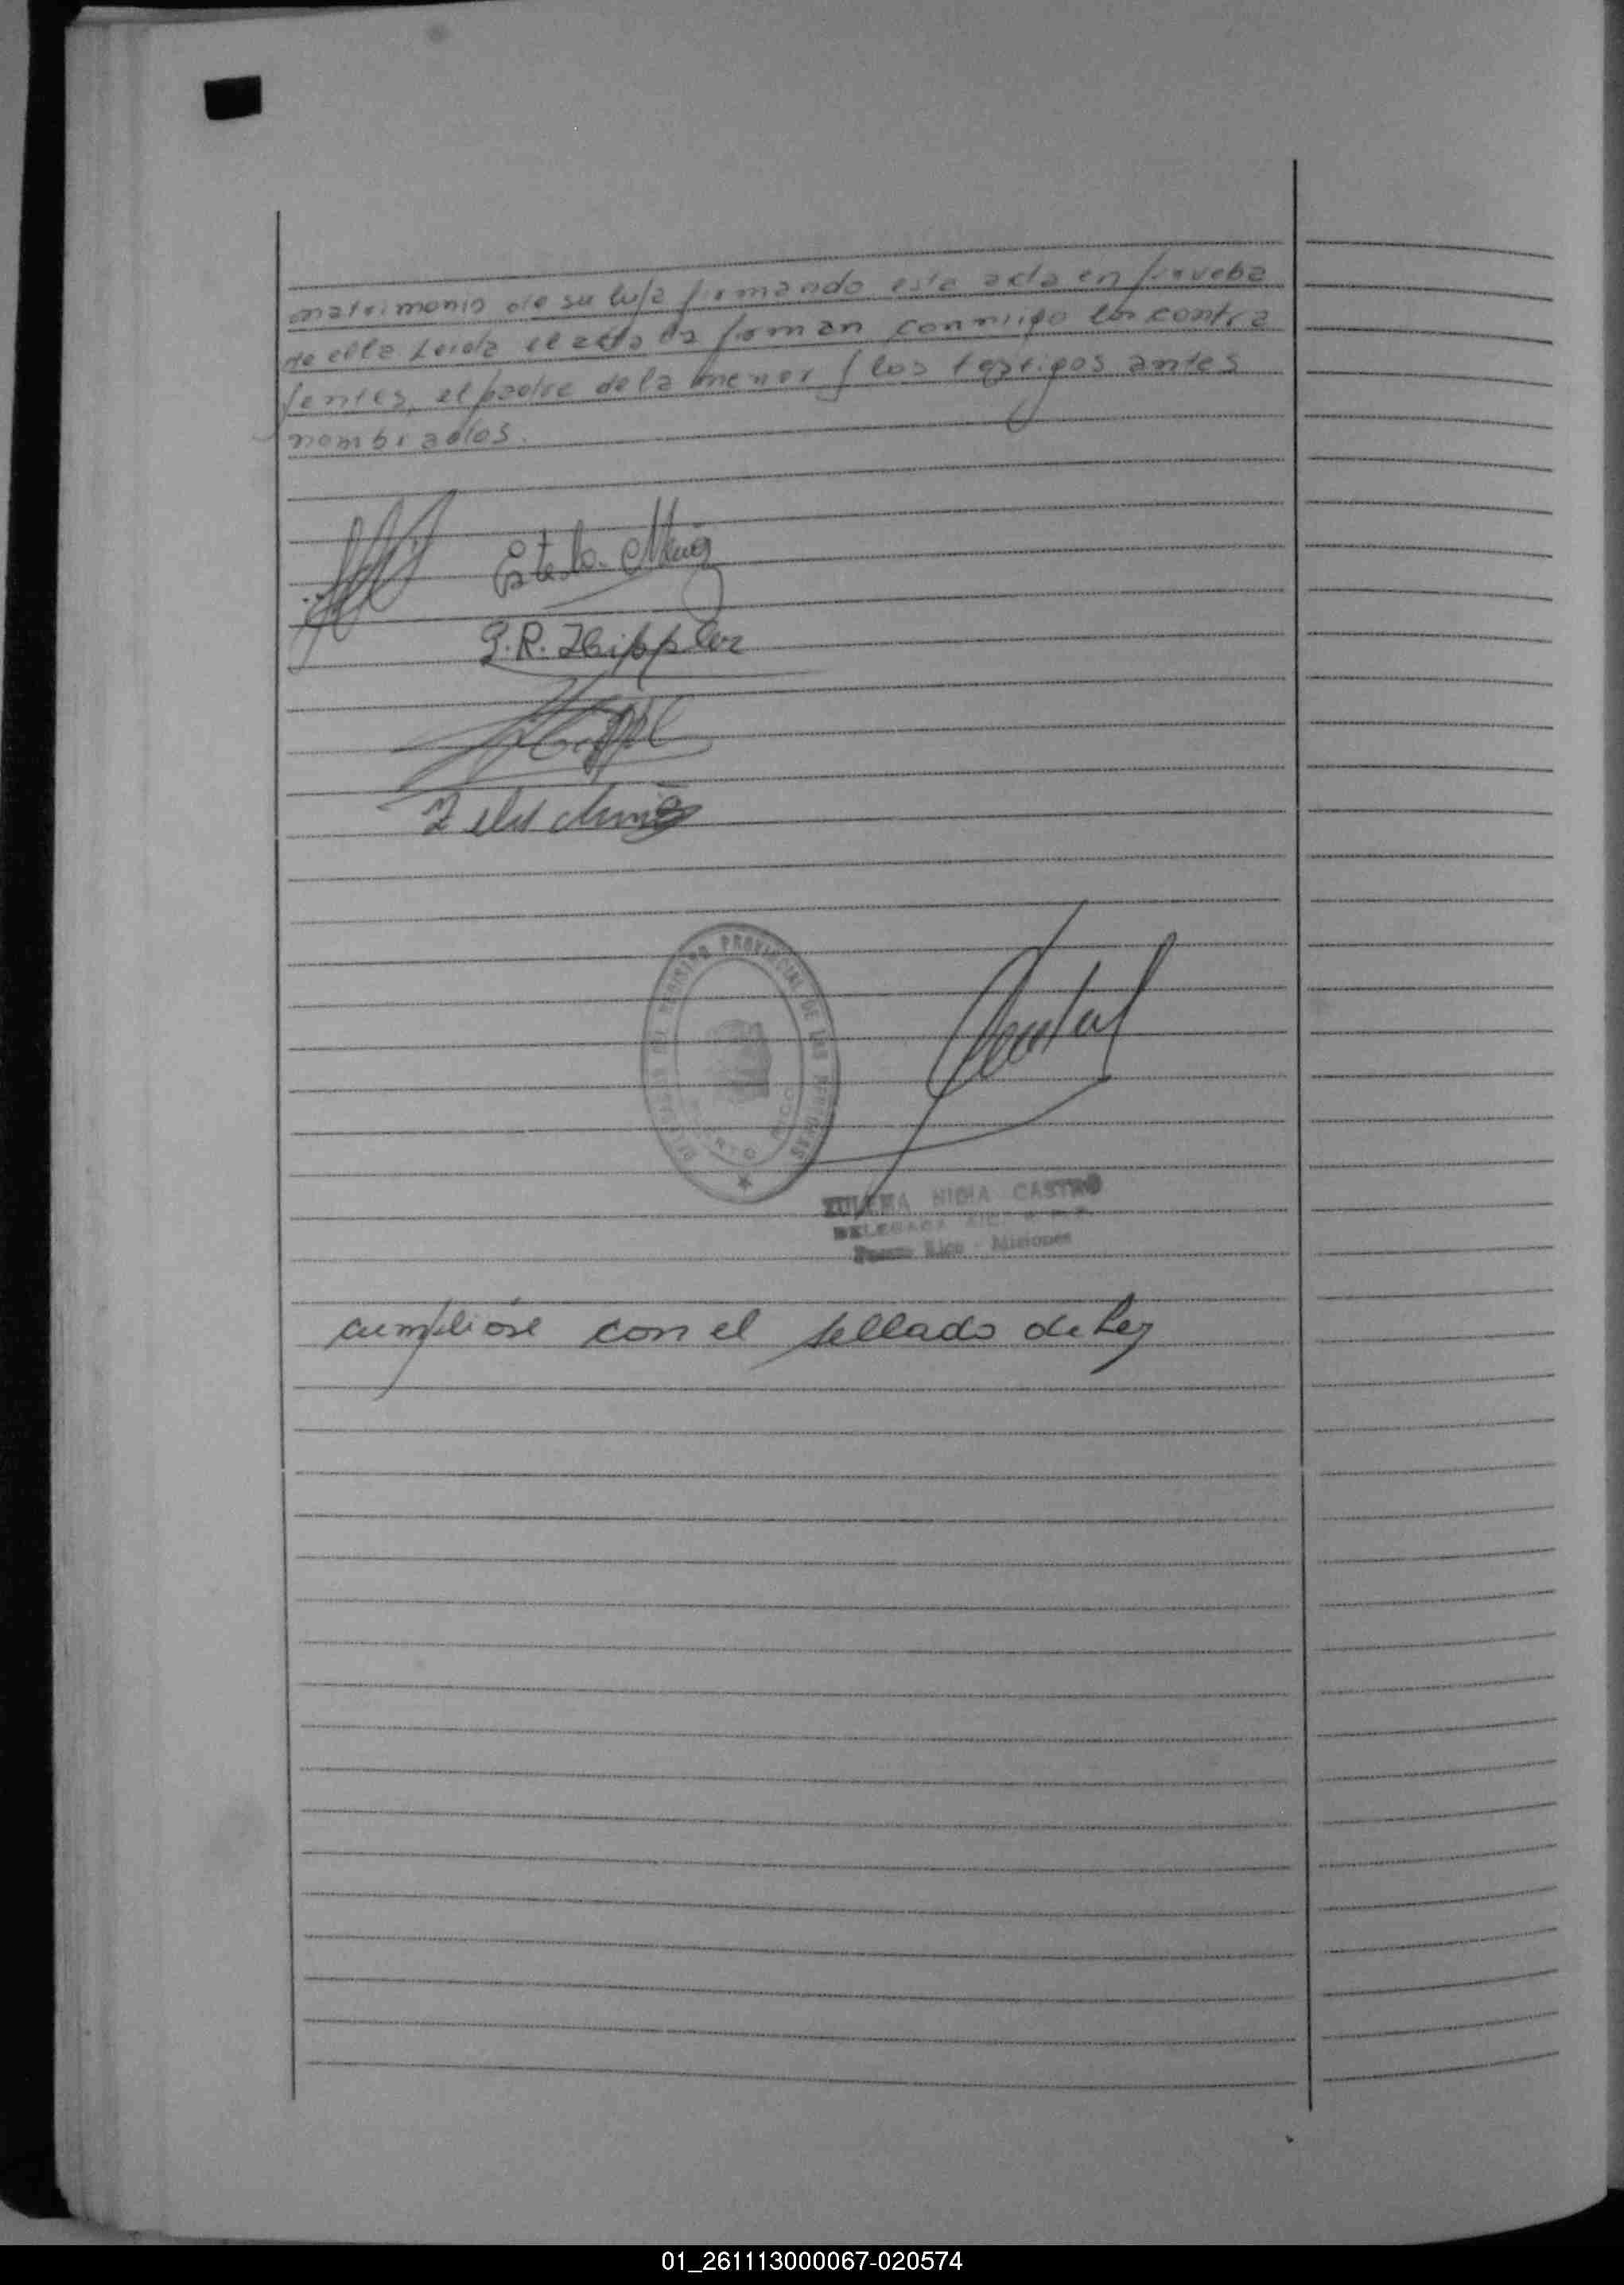 matrimonio de su hija firmando esta acta en prueba
de ella Leida el acta la firman conmigo los contra
yentes, el padre de la menor y los testigos antes
nombrados.
G. R. Hippler
DEL REGISTRO PROVINCIAL DE LAS PERSONAS
PUERTO RICO
ZULEMA NIDIA CASTRO
DELEGADA
Puerto Rico - Misiones
cumplióse con el sellado de Ley
01_261113000067-020574